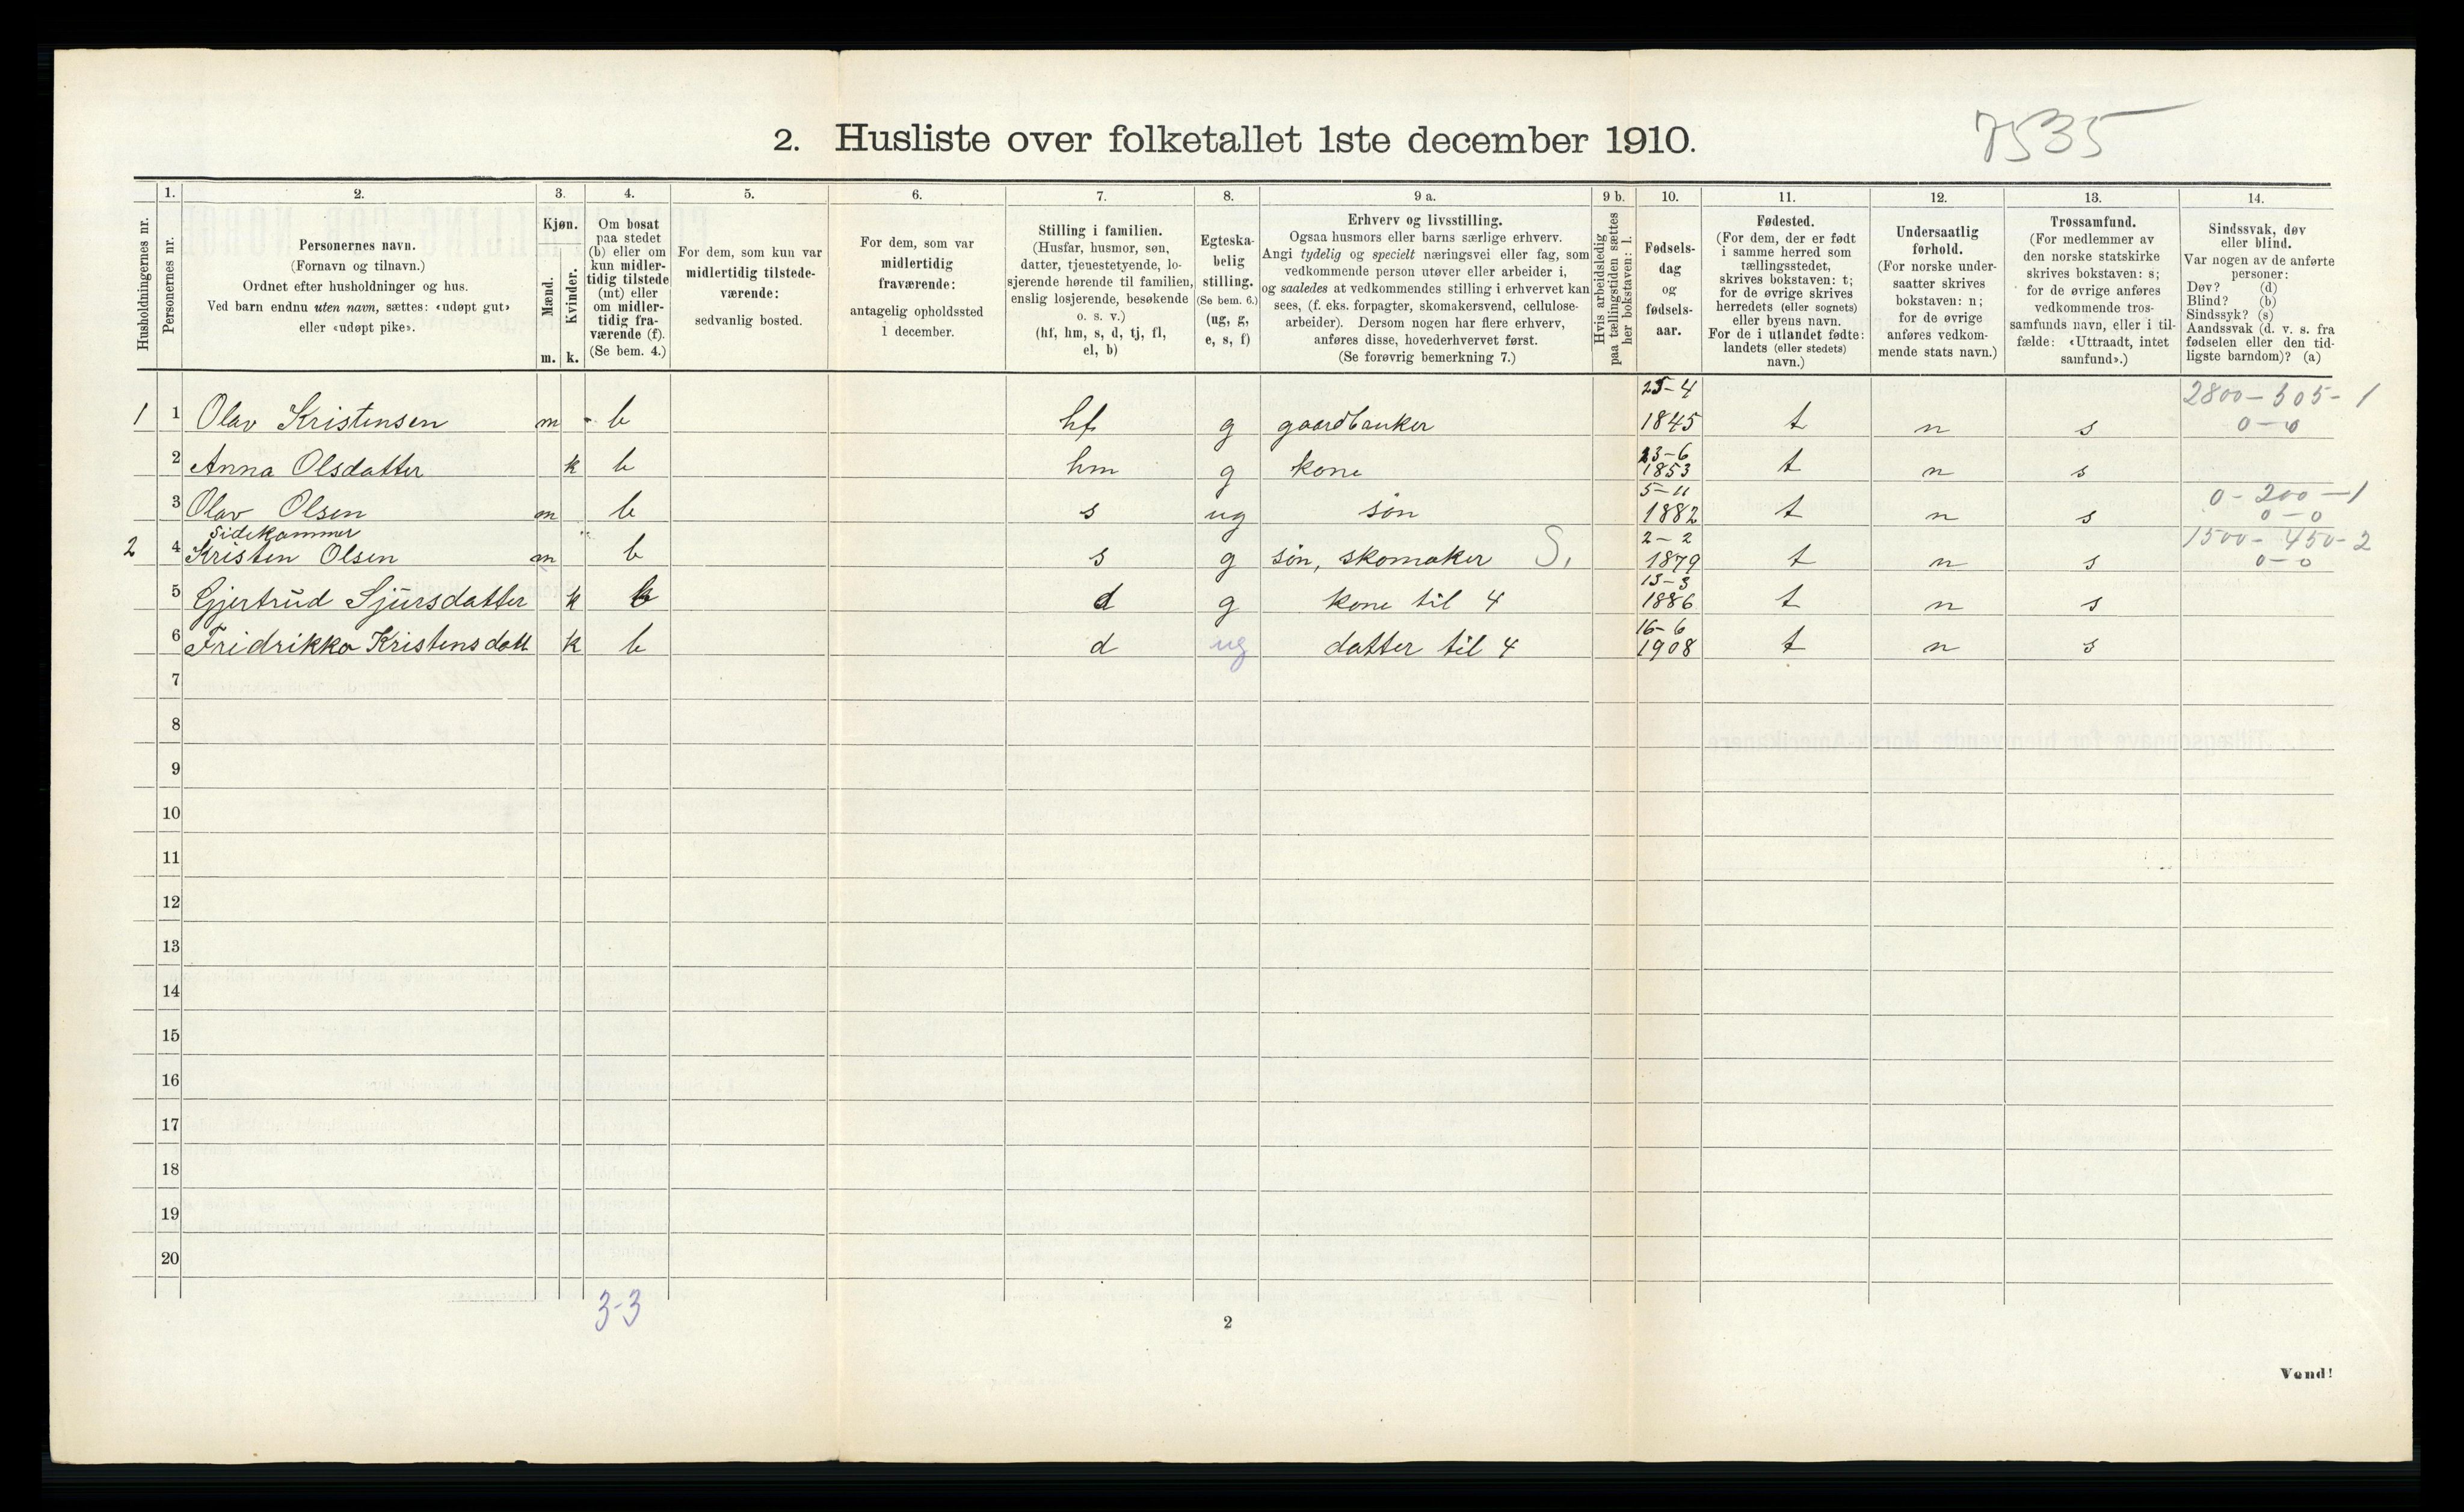 7535
2. Husliste over folketallet 1ste december 1910.
Husholdningernes nr.
1.
Personernes nr.
2.
Personernes navn.
(Fornavn og tilnavn.)
Ordnet efter husholdninger og hus.
Ved barn endnu uten navn, sættes: «udøpt gut»
eller «udøpt pike».
3.
Kjøn.
Mænd.
m.
Kvinder.
k.
4.
Om bosat
paa stedet
(b) eller om
kun midler-
tidig tilstede
(mt) eller
om midler-
tidig fra-
værende (f).
(Se bem. 4.)
5.
For dem, som kun var
midlertidig tilstede-
værende:
sedvanlig bosted.
6.
For dem, som var
midlertidig
fraværende:
antagelig opholdssted
1 december.
7.
Stilling i familien.
(Husfar, husmor, søn,
datter, tjenestetyende, lo-
sjerende hørende til familien,
enslig losjerende, besøkende
o. s. v.)
(hf, hm, s, d, tj, fl,
el, b)
8.
Egteska-
belig
stilling.
(Se bem. 6.)
(ug, g,
e, s, f)
9 a.
Erhverv og livsstilling.
Ogsaa husmors eller barns særlige erhverv.
Angi tydelig og specielt næringsvei eller fag, som
vedkommende person utøver eller arbeider i,
og saaledes at vedkommendes stilling i erhvervet kan
sees, (f. eks. forpagter, skomakersvend, cellulose-
arbeider). Dersom nogen har flere erhverv,
anføres disse, hovederhvervet først.
(Se forøvrig bemerkning 7.)
9 b.
Hvis arbeidsledig
paa tællingstiden sættes
her bokstaven: l.
10.
Fødsels-
dag
og
fødsels-
aar.
11.
Fødested.
(For dem, der er født
i samme herred som
tællingsstedet,
skrives bokstaven: t;
for de øvrige skrives
herredets (eller sognets)
eller byens navn.
For de i utlandet fødte:
landets (eller stedets)
navn.)
12.
Undersaatlig
forhold.
(For norske under-
saatter skrives
bokstaven: n;
for de øvrige
anføres vedkom-
mende stats navn.)
13.
Trossamfund.
(For medlemmer av
den norske statskirke
skrives bokstaven: s;
for de øvrige anføres
vedkommende tros-
samfunds navn, eller i til-
fælde: «Uttraadt, intet
samfund».)
14.
Sindssvak, døv
eller blind.
Var nogen av de anførte
personer:
Døv? (d)
Blind? (b)
Sindssyk? (s)
Aandssvak (d. v. s. fra
fødselen eller den tid-
ligste barndom)? (a)
25-4 2800-505-1
1 1 Olav Kristensen m b hf g gaardbruker 1845 t n s 0-0
23-6
2 Anna Olsdatter k b hm g kone 1853 t n s
5-11 0-200-1
3 Olav Olsen m b s ug søn 1882 t n s 0-0
Sidekammer 2-2 1500-450-2
2 4 Kristen Olsen m b s g søn, skomaker S. 1879 t n s 0-0
13-3
5 Gjertrud Sjursdatter k b d g kone til 4 1886 t n s
16-6
6 Fridrikka Kristensdatt k b d ug datter til 4 1908 t n s
7
8
9
10
11
12
13
14
15
16
17
18
19
20
3-3
2
Vend!